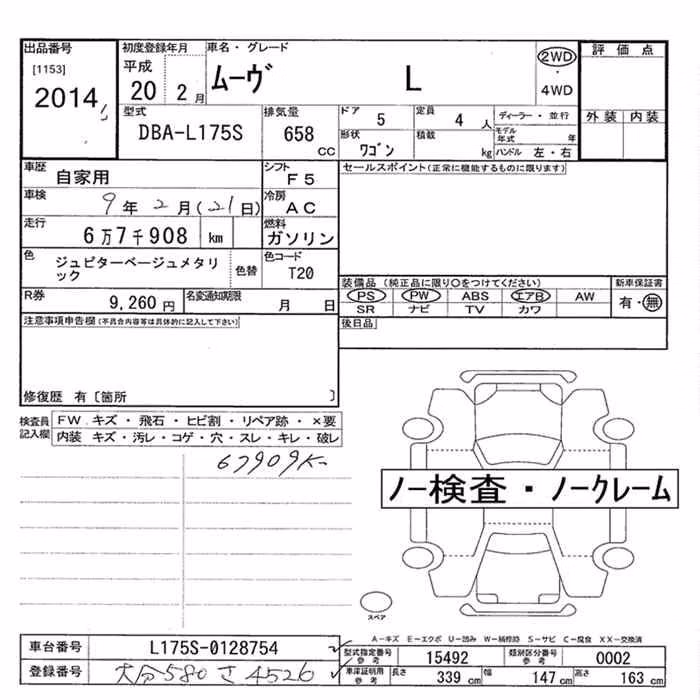 出品番号
[1153]
2014
初度登録年月
平成
20 2月
車名・グレード
ムーヴ L
2WD
・
4WD
評価点
外装 内装
型式
DBA-L175S
排気量
658
CC
ドア
5
定員
4 人
ディーラー・並行
形状
ワゴン
積載
kg
モデル年式 年
ハンドル 左・右
車歴
自家用
シフト
F5
車検
9年2月(21日)
冷房
AC
走行
6万7千908 km
燃料
ガソリン
色
ジュピターベージュメタリ
ック
色替
色コード
T20
R券
9,260円
名変通知期限
月 日
セールスポイント(正常に機能するものに限ります)
装備品(純正品に限り○をつけてください)
PS PW ABS エアB AW
SR ナビ TV カワ
新車保証書
有・無
後日品
注意事項申告欄(不具合内容等は具体的に記入して下さい)
修復歴 有〔箇所 〕
検査員
記入欄
FW. キズ・飛石・ヒビ割・リペア跡・×要
内装 キズ・汚レ・コゲ・穴・スレ・キレ・破レ
67909K
ノー検査・ノークレーム
スペア
A-キズ E-エクボ U-凹み W-補修跡 S-サビ C-腐食 XX-交換済
車台番号
L175S-0128754
登録番号
大分580さ4526
型式指定番号
参考
15492
類別区分番号
参考
0002
車庫証明用
参考
長さ
339 cm
幅
147 cm
高さ
163 cm